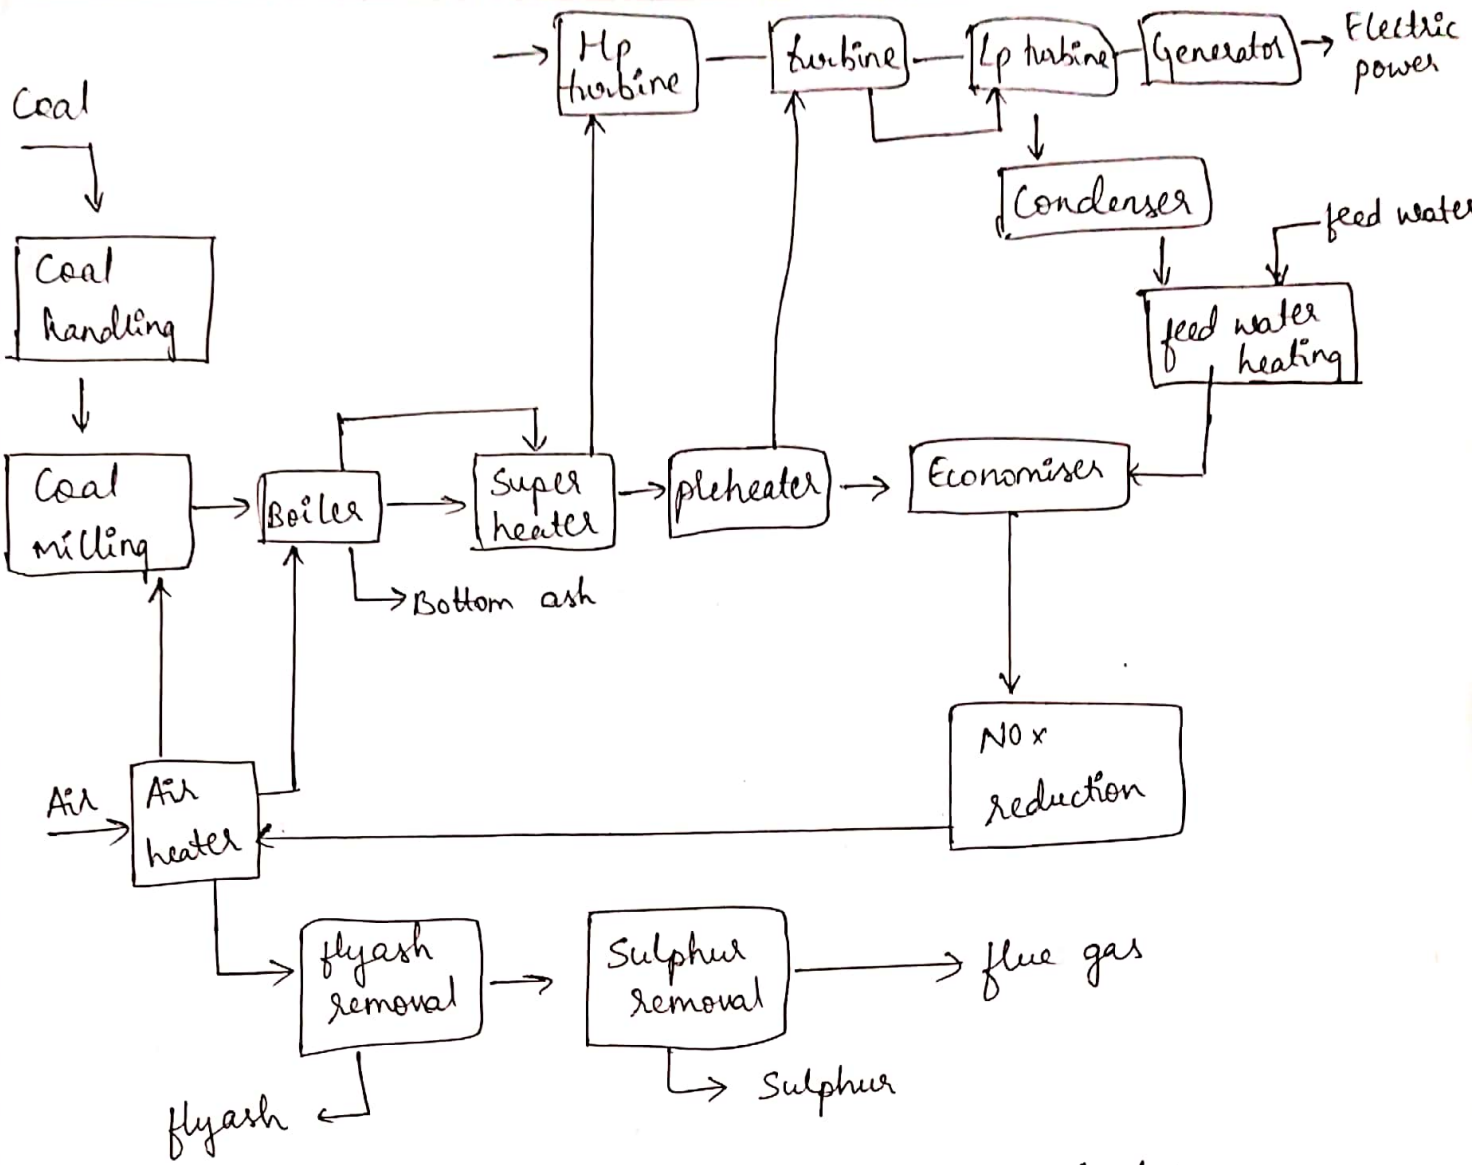 Hp
turbine
turbine
Lp turbine
Generator
Electric
power
Coal
Condenser
feed water
Coal
handling
feed water
heating
Coal
milling
Boiler
Super
heater
preheater
Economiser
Bottom ash
NOx
reduction
Air
Air
heater
flyash
removal
Sulphur
removal
flue gas
flyash
Sulphur